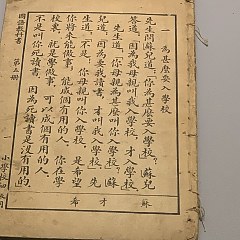 一 為甚麼要入學校
先生問蘇兒道，你為甚麼要入學校？蘇兒
答道，因為我母親叫我入學校，才入學校。
先生道，你母親為甚麼叫你入學校？
道，要我讀書，才叫我入學校。先
生道，不是，你母親叫你入學校，是希望
你將來能做事，能成個有用的人。你在學
校裏，就是學做事，可以成個有用的人，
不是叫你死讀書，因為死讀書是沒有用的。
國語教科書 第五册
小學校初級用